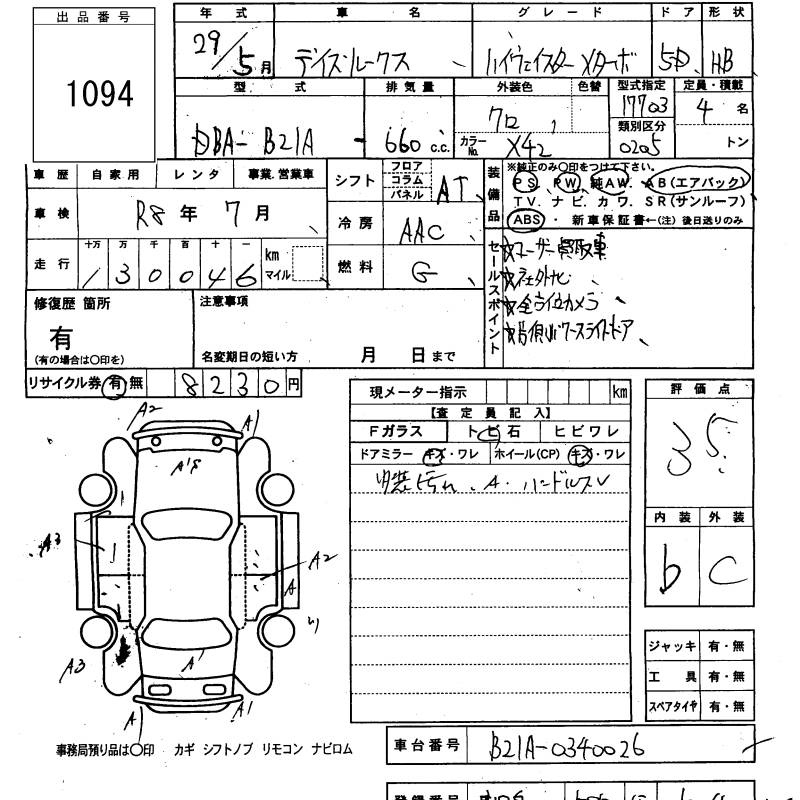 出品番号
1094
年式 車名 グレード ドア 形状
29/5月 デイズルークス ハイウェイスターXターボ 5D HB
型式 排気量 外装色 色替 型式指定 定員・積載
DBA- B21A 660 c.c. クロ 17703 4名
カラーNo. X42 類別区分 0205 トン
車歴 自家用 レンタ 事業、営業車
車検 R8年 7月
走行 十万 万 千 百 十 一 km マイル
130046
シフト フロア コラム パネル AT
冷房 AAC
燃料 G
装備品 ※純正のみ○印をつけて下さい。
PS. PW. 純AW. AB(エアバック)
TV. ナビ. カワ. SR(サンルーフ)
ABS ・ 新車保証書←(注)後日送りのみ
セールスポイント
☆ユーザー買取車
☆社外ナビ
☆全方位カメラ
☆両側パワースライドドア
修復歴 箇所
有
(有の場合は○印を)
注意事項
名変期日の短い方 月 日まで
リサイクル券 有 無 8230円
現メーター指示 km
【査定員記入】
Fガラス トビ石 ヒビワレ
ドアミラー キズ・ワレ ホイール(CP) キズ・ワレ
内装汚れ. A. ハンドルスレ
評価点
3.5
内装 外装
b C
ジャッキ 有・無
工具 有・無
スペアタイヤ 有・無
A2 A1
A'8
A3
A2
A
A3
A'
A1 A1
事務局預り品は○印 カギ シフトノブ リモコン ナビロム
車台番号 B21A-0340026
登録番号